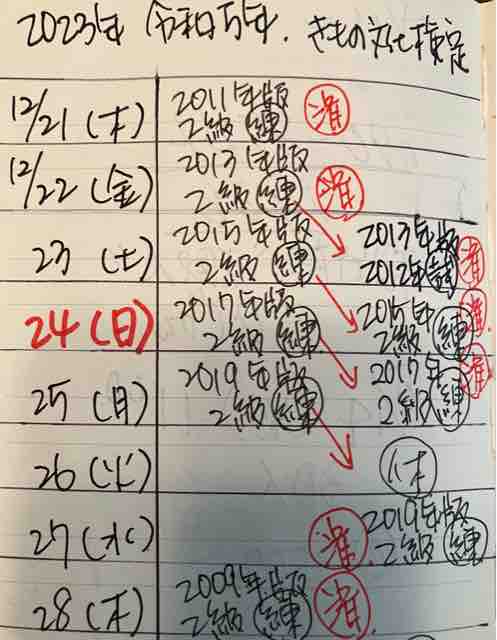 2023年 令和5年. きもの文化検定
12/21(木) 2011年版
2級 練 準
12/22(金) 2013年版
2級 練 準
23(土) 2015年版
2級 練
2013年版
2012年試 準
24(日) 2017年版
2級 練
2015年
2級 練 準
25(月) 2019年版
2級 練
2017年
2級 練 準
26(火) 休
27(水) 準 2019年版
2級 練
28(木) 2009年版
2級 練 準